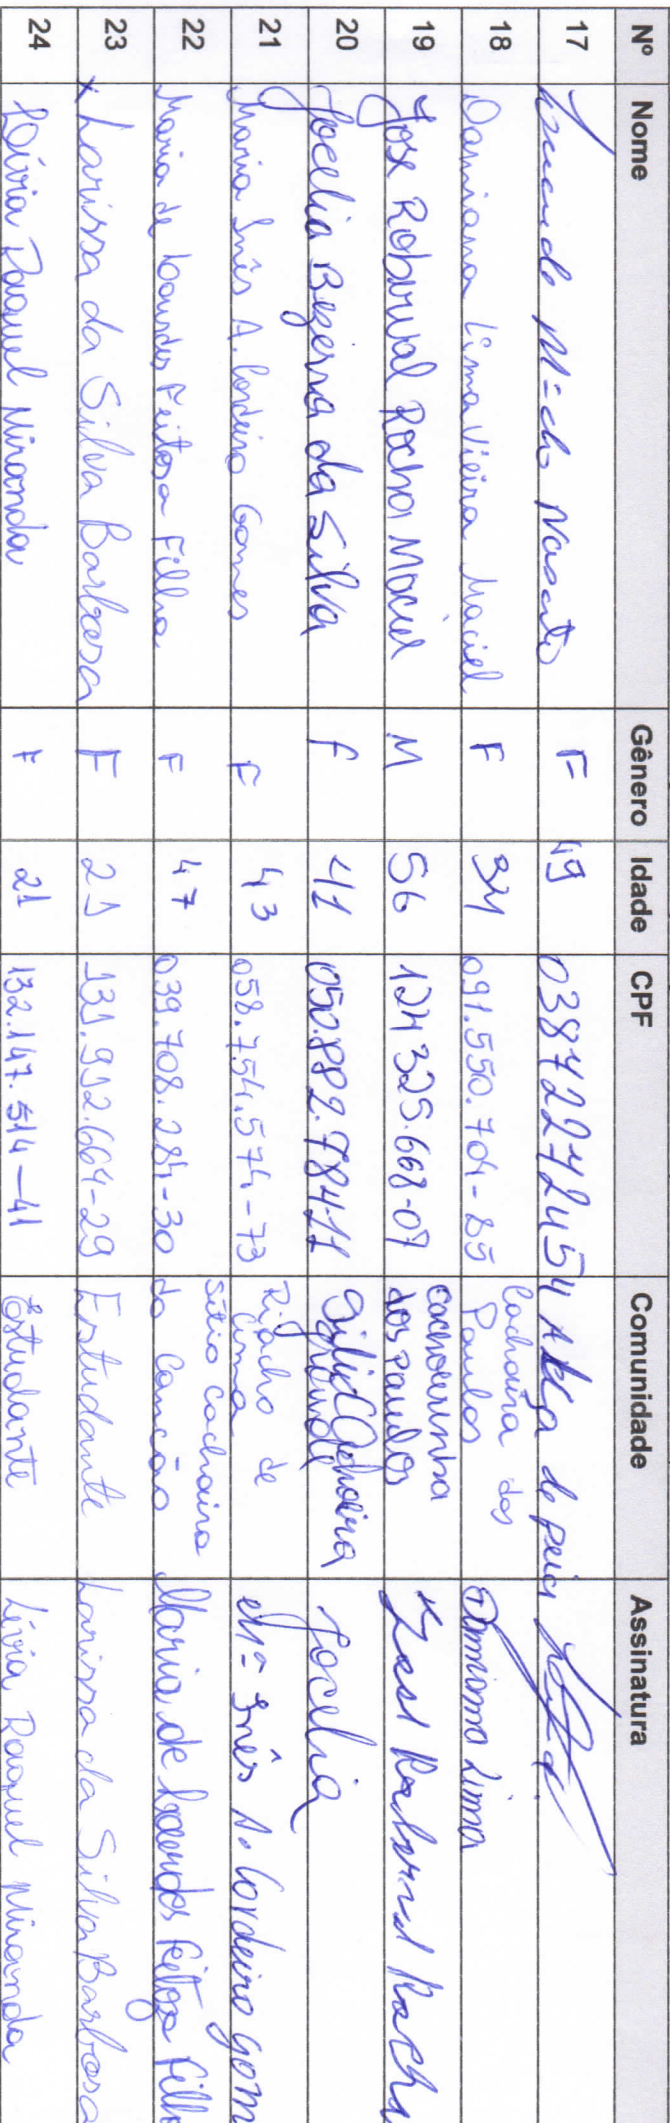 Nº Nome Gênero Idade CPF Comunidade Assinatura
17 Mª do F 49 03872272454
18 Damiana Lima Vieira Maciel F 34 091.550.704-85 Cachoeira dos Paulos Damiana Lima
19 Jose Roburval Rocha Maciel M 56 124325.668-07 cachoeirinha dos paulos Rocha
20 Jocelia Bezerra da Silva f 41 Jocelia
21 Maria Inês A. Cordeiro Gomes F 43 058.754.574-73 Riacho de Cima Mª Inês A. Cordeiro Gom
22 Maria de Lourdes Feitosa Filha F 47 039.708.284-30 Sítio Cachoeira do Maria de Lourdes Feitoza Filh
23 x Larissa da Silva Barbosa F 21 131.992.664-29 Estudante Larissa da Silva Barbosa
24 Lívia Raquel Miranda F 21 132.147.514-41 Estudante Lívia Raquel Miranda